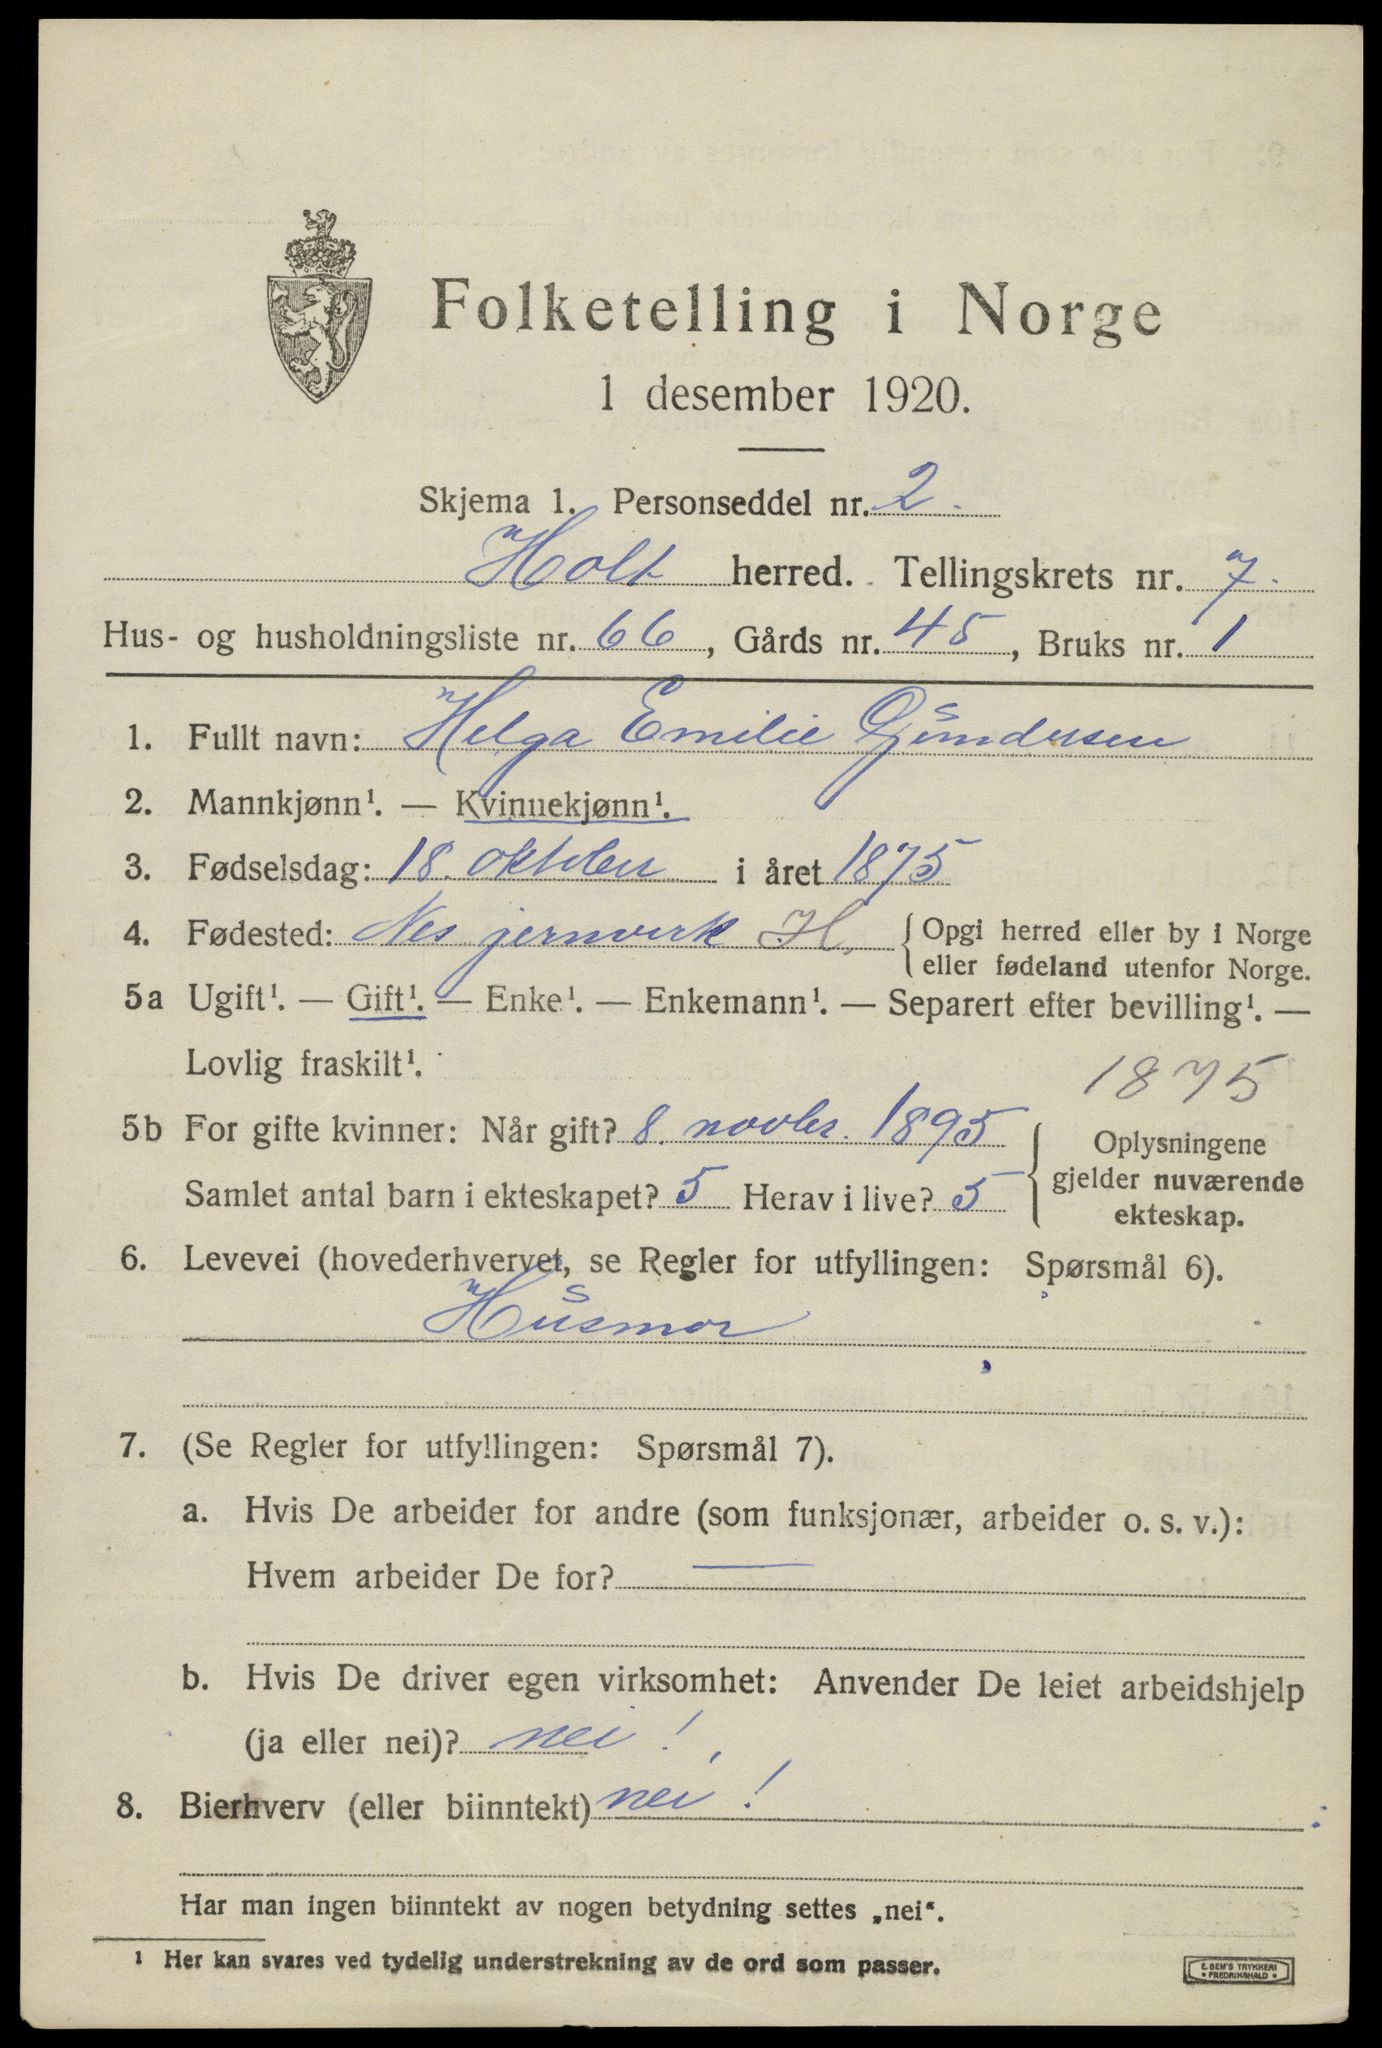 Folketelling i Norge
1 desember 1920.
Skjema 1. Personseddel nr. 2.
Holt herred. Tellingskrets nr. 7.
Hus- og husholdningsliste nr. 66, Gårds nr. 45, Bruks nr. 1
1. Fullt navn: Helga Emilie Gundersen
2. Mannkjønn¹. — Kvinnekjønn¹.
3. Fødselsdag: 18. oktober i året 1875
4. Fødested: Nes jernverk H. { Opgi herred eller by i Norge
eller fødeland utenfor Norge.
5a Ugift¹. — Gift¹. — Enke¹. — Enkemann¹. — Separert efter bevilling¹. —
Lovlig fraskilt¹.
1875
5b For gifte kvinner: Når gift? 8. novbr. 1895
Samlet antal barn i ekteskapet? 5 Herav i live? 5
Oplysningene
gjelder nuværende
ekteskap.
6. Levevei (hovederhvervet, se Regler for utfyllingen: Spørsmål 6).
Husmor
7. (Se Regler for utfyllingen: Spørsmål 7).
a. Hvis De arbeider for andre (som funksjonær, arbeider o. s. v.):
Hvem arbeider De for? —
b. Hvis De driver egen virksomhet: Anvender De leiet arbeidshjelp
(ja eller nei)? nei!
8. Bierhverv (eller biinntekt) nei!
Har man ingen biinntekt av nogen betydning settes „nei“.
¹ Her kan svares ved tydelig understrekning av de ord som passer.
E. SEM'S TRYKKERI
• FREDRIKSHALD •